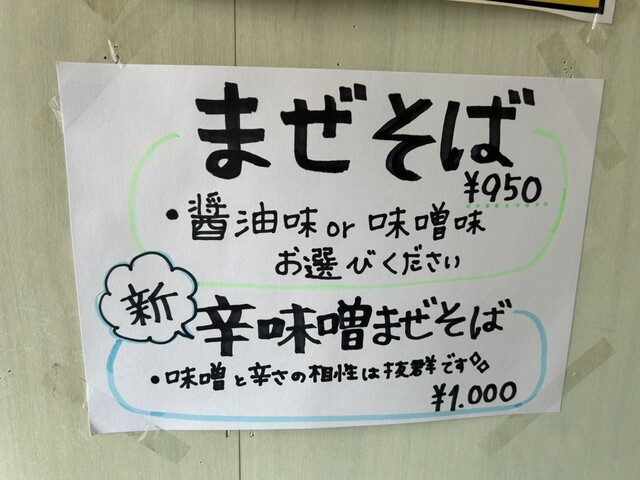 まぜそば
¥950
・醤油味or味噌味
お選びください
新
辛味噌まぜそば
・味噌と辛さの相性は抜群です
¥1.000